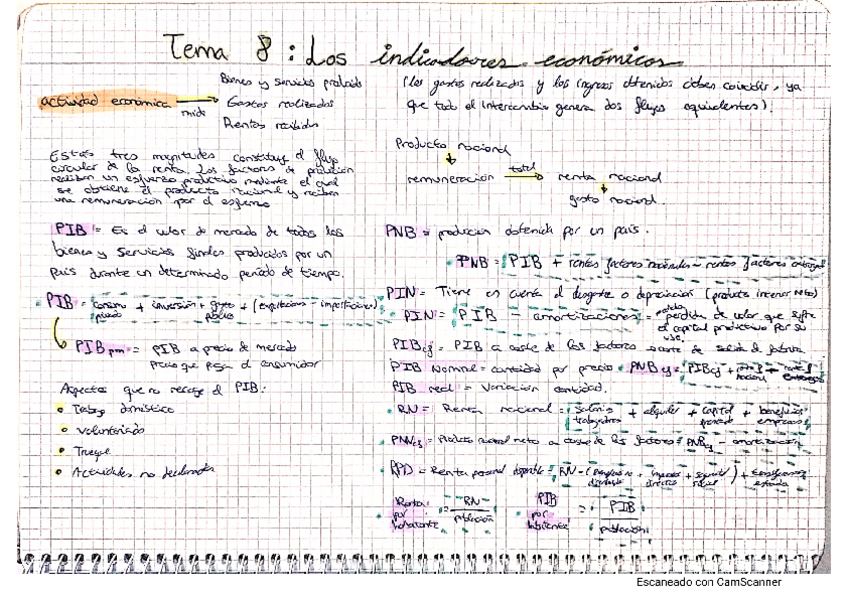 Tema 8: Los indicadores económicos
actividad económica
mide
Bienes y servicios producidos
Gastos realizados
Rentas recibidas
Estas tres magnitudes constituyen el flujo
circular de la renta. Los factores de producción
realizan un esfuerzo productivo mediante el cual
se obtiene el producto nacional y reciben
una remuneración por el esfuerzo
PIB = Es el valor de mercado de todos los
bienes y servicios finales producidos por un
país durante un determinado periodo de tiempo.
PIB = consumo privado + inversión + gasto público + (exportaciones - importaciones)
PIB pm = PIB a precio de mercado
precio que paga el consumidor
Aspectos que no recoge el PIB:
Trabajo doméstico
Voluntariado
Trueque
Actividades no declaradas
(los gastos realizados y los ingresos obtenidos deben coincidir, ya
que todo el intercambio genera dos flujos equivalentes).
Producto nacional
remuneración total renta nacional
gasto nacional.
PNB = producción obtenida por un país.
PNB = PIB + rentas factores nacionales - rentas factores
PIN = Tiene en cuenta el desgaste o depreciación (producto interior neto)
PIN = PIB - amortizaciones = pérdida de valor que sufre
el capital productivo por su
uso.
PIB cf = PIB a coste de los factores = coste de salida de fábrica
PIB Nominal = cantidad por precio
PNB cf = PIBcf +
PIB real = Variación cantidad.
RN = Renta nacional = salarios trabajadores + alquiler + capital + beneficios empresas
PNNcf = Producto nacional neto a coste de los factores = PNBcf - amortización
RPD = Renta personal disponible = RN - ( + impuestos directos + seguridad social) +
Renta por habitante = RN / población
PIB por habitante = PIB / población
Escaneado con CamScanner